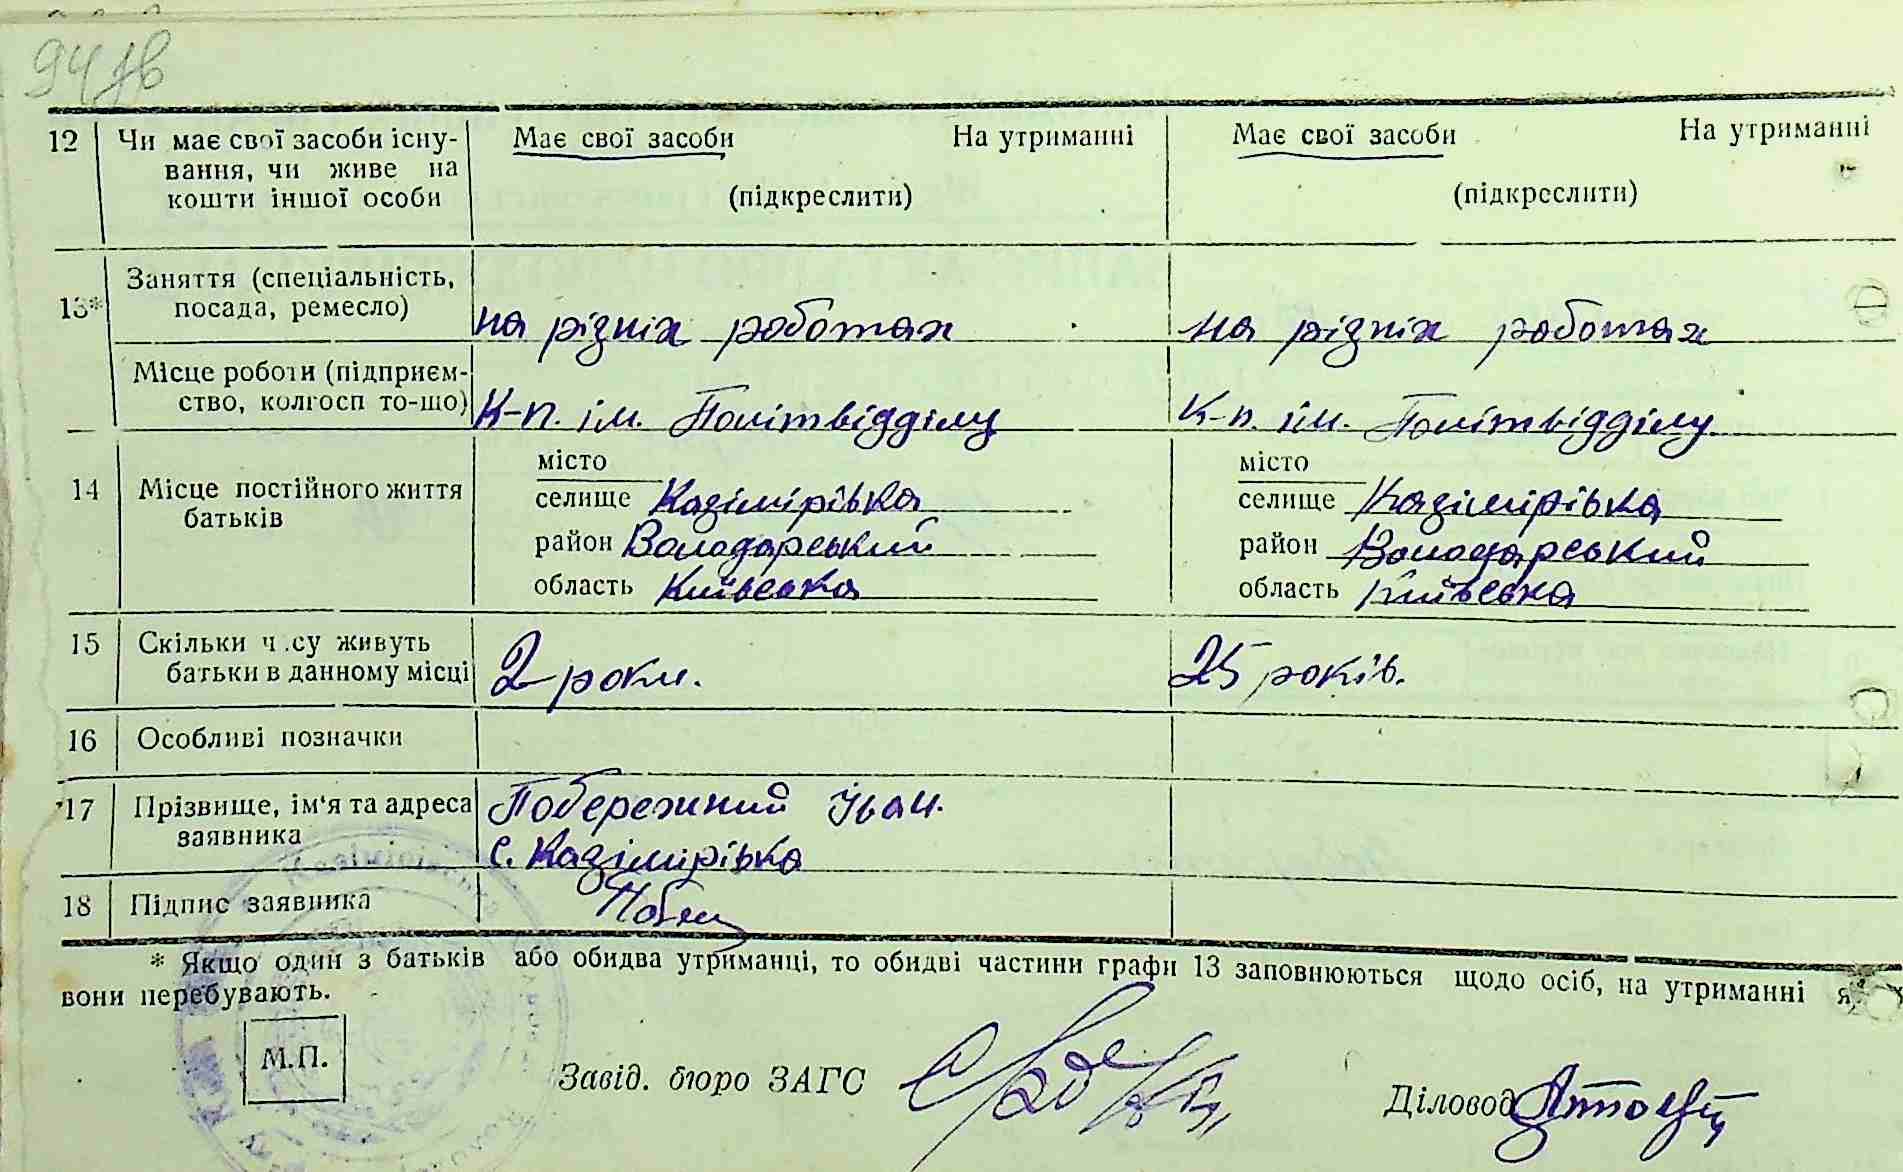 94 зв
12 Чи має свої засоби існу- Має свої засоби На утриманні Має свої засоби На утриманні
вання, чи живе на
кошти іншої особи (підкреслити) (підкреслити)
13* Заняття (спеціальність,
посада, ремесло) на різніх роботах на різніх роботах
Місце роботи (підприєм-
ство, колгосп то-що) К-п. ім. Політвідділу К-п. ім. Політвідділу
місто місто
14 Місце постійного життя селище Казімірівка селище Казімірівка
батьків район Володарський район Володарський
область Київська область Київська
15 Скільки ч.су живуть
батьки в данному місці 2 роки. 25 років.
16 Особливі позначки
17 Прізвище, ім'я та адреса Побережний Іван.
заявника с. Казімірівка
18 Підпис заявника
* Якщо один з батьків або обидва утриманці, то обидві частини графи 13 заповнюються щодо осіб, на утриманні
вони перебувають.
М.П.
Завід. бюро ЗАГС
Діловод